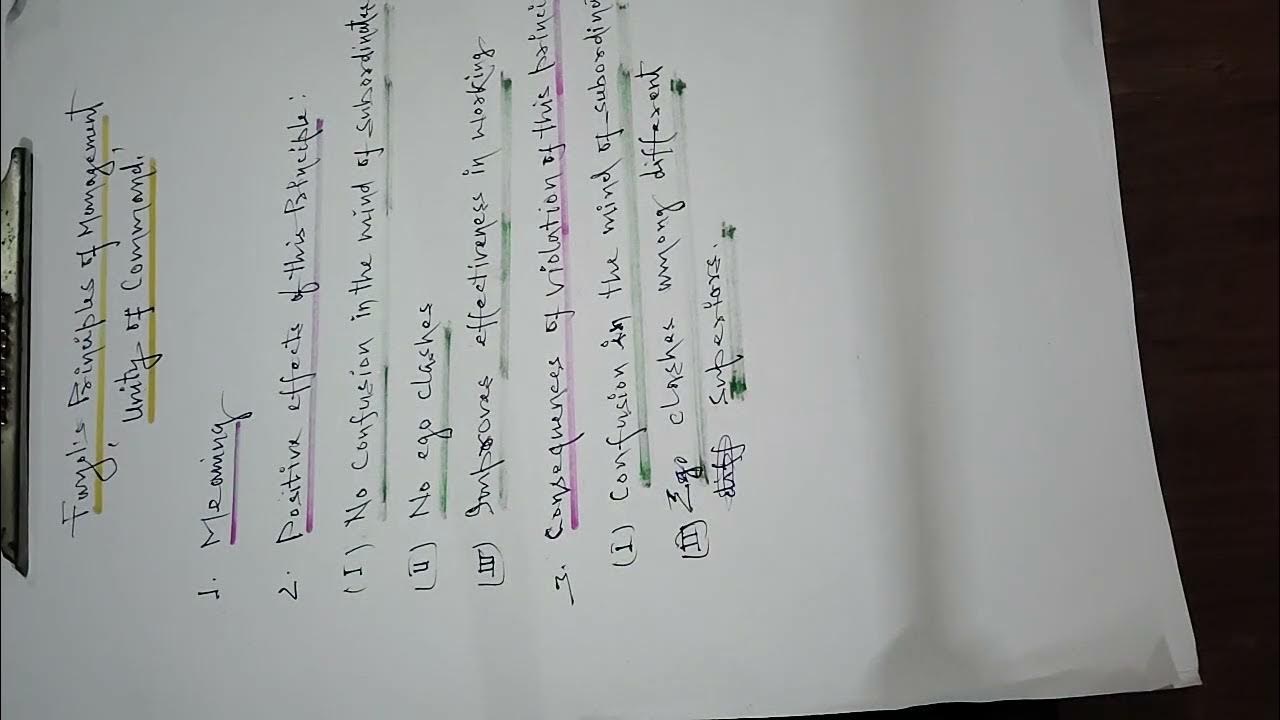 Fayol's Principles of Management
Unity of Command.
1. Meaning
2. Positive effects of this Principle:
(I) No Confusion in the mind of subordinates
(II) No ego clashes
(III) Improves effectiveness in working
3. Consequences of violation of this princi
(I) Confusion in the mind of subordina
(II) Ego clashes among different
superiors.